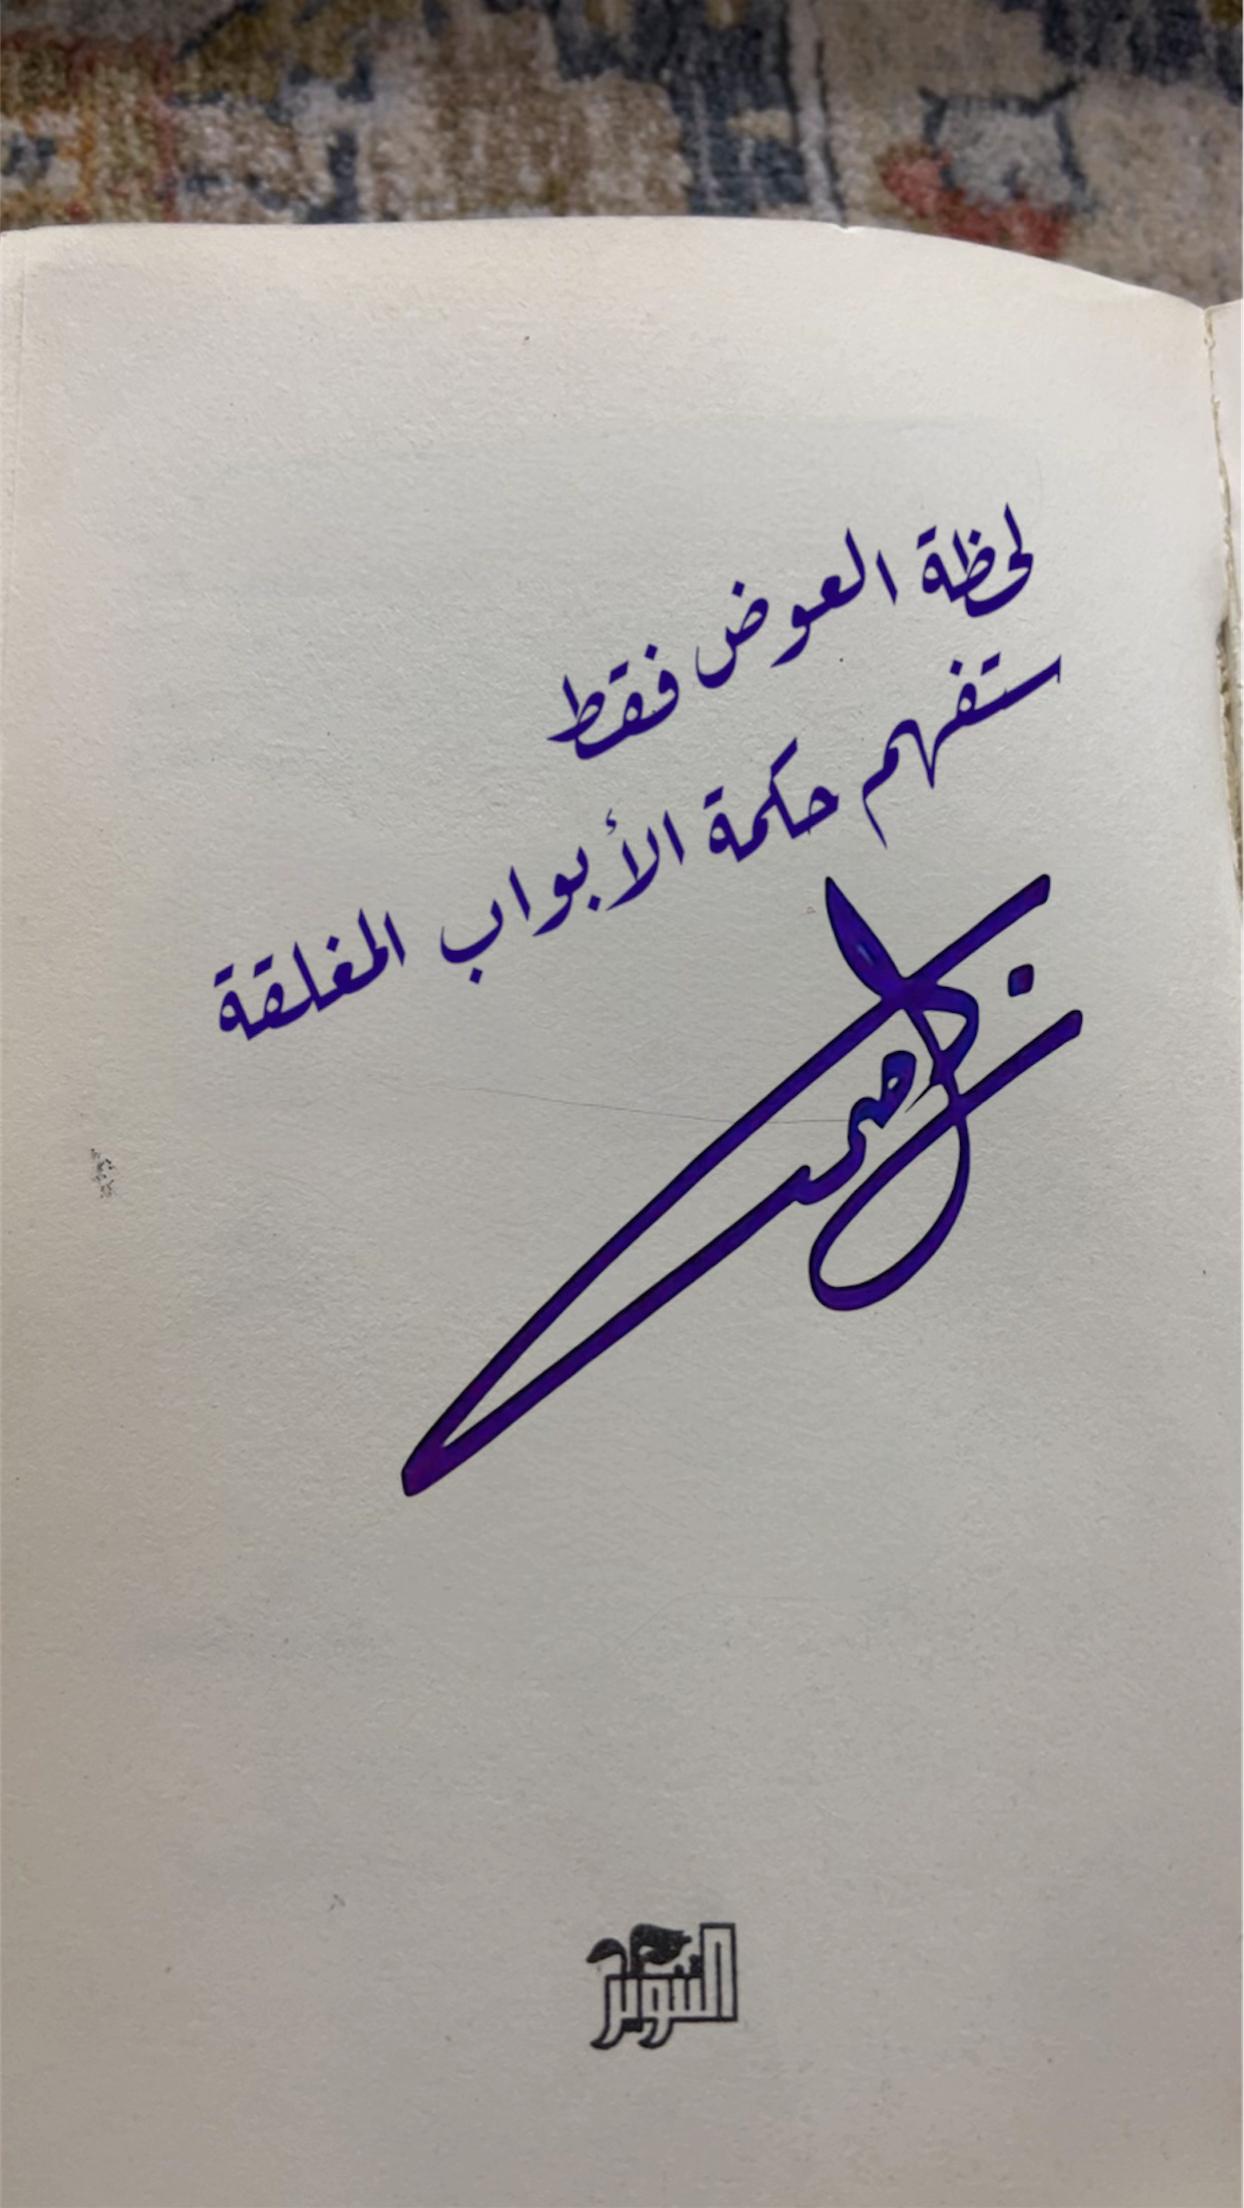 لحظة العوض فقط
ستفهم حكمة الأبواب المغلقة
التنوير